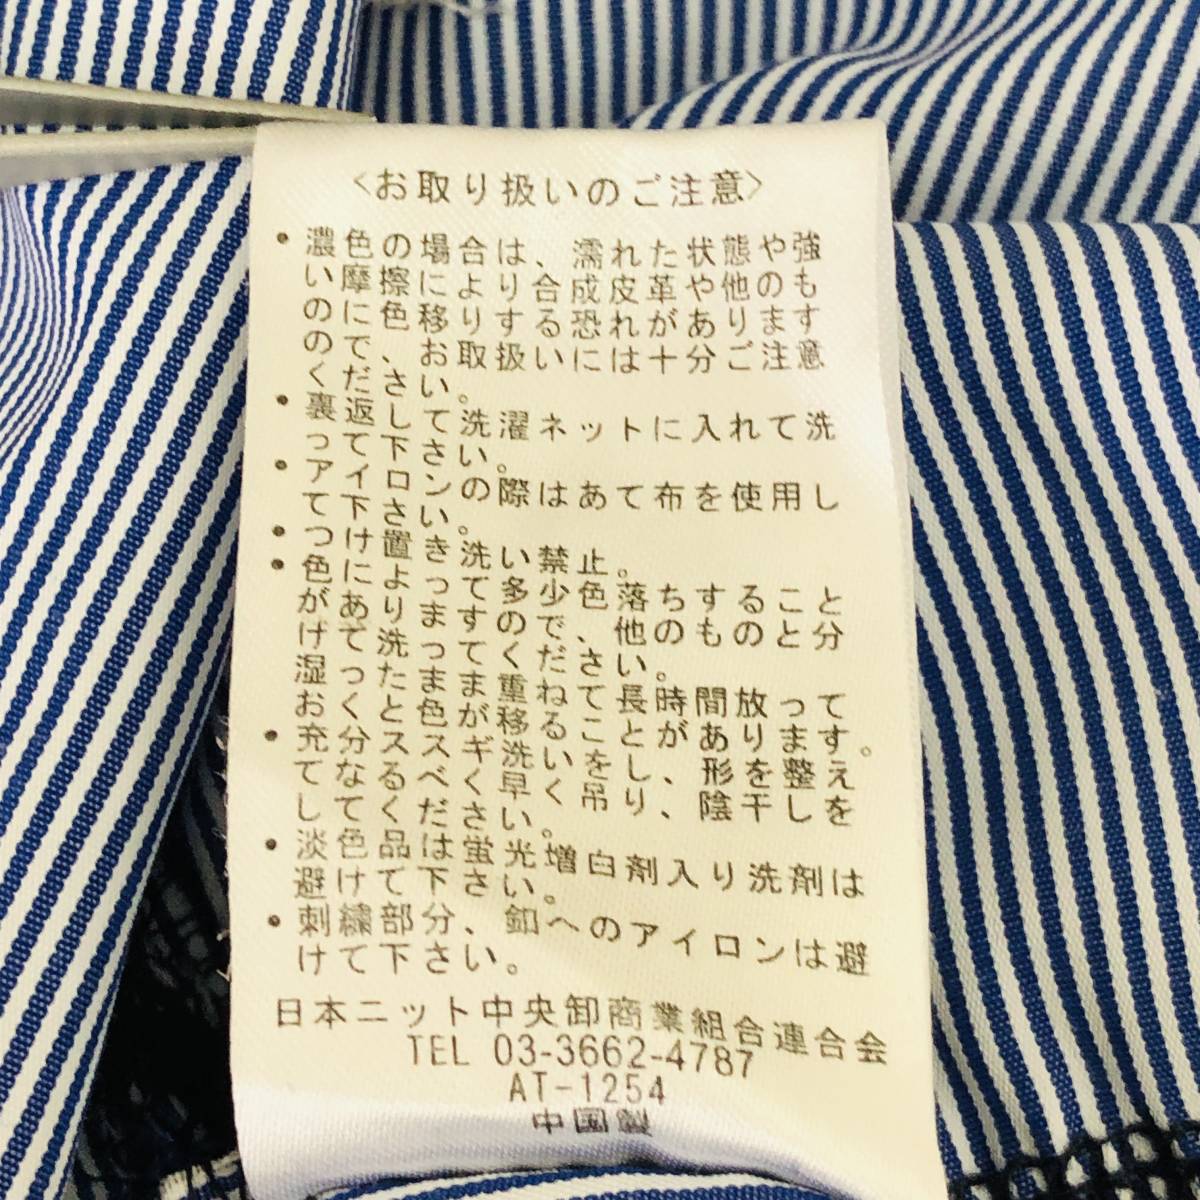 〈お取り扱いのご注意〉
・濃色の場合は、濡れた状態や強
い摩擦により合成皮革や他のも
のに色移りする恐れがあります
ので、お取扱いには十分ご注意
ください。
・裏返して洗濯ネットに入れて洗
って下さい。
・アイロンの際はあて布を使用し
て下さい。
・つけ置き洗い禁止。
・色によって多少色落ちすること
がありますので、他のものと分
けて洗ってください。
湿ったまま重ねて長時間放って
おくと色が移ることがあります。
・充分ススギ洗いをし、形を整え
てなるべく早く吊り、陰干しを
してください。
・淡色品は蛍光増白剤入り洗剤は
避けて下さい。
・刺繍部分、釦へのアイロンは避
けて下さい。
日本ニット中央卸商業組合連合会
TEL 03-3662-4787
AT-1254
中国製